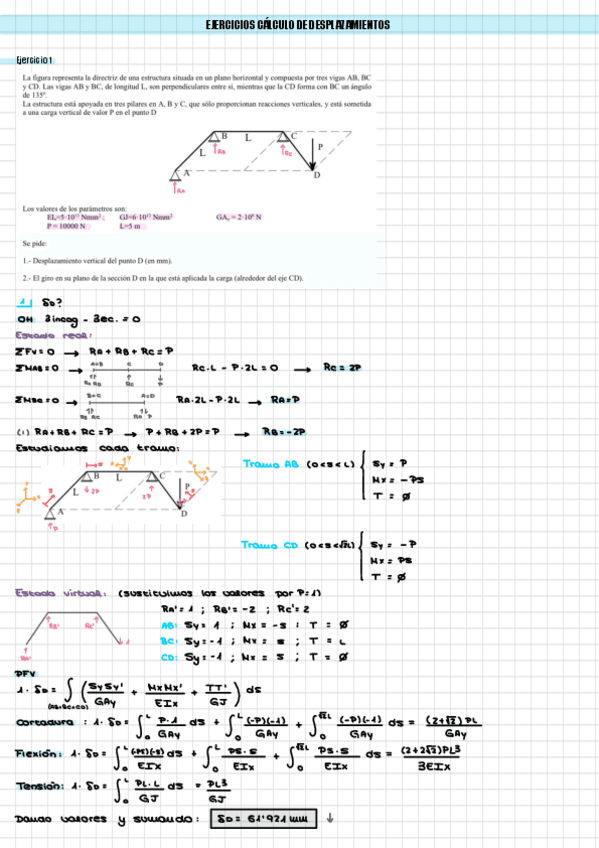 EJERCICIOS CÁLCULO DE DESPLAZAMIENTOS
Ejercicio 1
La figura representa la directriz de una estructura situada en un plano horizontal y compuesta por tres vigas AB, BC
y CD. Las vigas AB y BC, de longitud L, son perpendiculares entre sí, mientras que la CD forma con BC un ángulo
de 135º.
La estructura está apoyada en tres pilares en A, B y C, que sólo proporcionan reacciones verticales, y está sometida
a una carga vertical de valor P en el punto D
B L C
L RB RC P
A D
RA
Los valores de los parámetros son:
EIx=5·10¹³ Nmm²; GJ=6·10¹³ Nmm² GAy = 2·10⁸ N
P = 10000 N L=5 m
Se pide:
1.- Desplazamiento vertical del punto D (en mm).
2.- El giro en su plano de la sección D en la que está aplicada la carga (alrededor del eje CD).
1 δD?
GH 3incog - 3ec. = 0
Estado real:
ΣFv=0 → RA + RB + RC = P
ΣMAB=0 → RC·L - P·2L = 0 → RC = 2P
ΣMBC=0 → RA·2L - P·2L → RA=P
(1) RA+RB+RC=P → P+RB+2P=P → RB=-2P
Estudiamos cada tramo:
Tramo AB (0<s<L) Sy = P
Mx = -PS
T = Ø
Tramo CD (0<s<√2L) Sy = -P
Mx = PS
T = Ø
Estado virtual: (sustituimos los valores por P=1)
RA'=1 ; RB'=-2 ; RC'=2
AB: Sy=1 ; Mx=-s ; T=Ø
BC: Sy=-1 ; Mx=s ; T=L
CD: Sy=-1 ; Mx=s ; T=Ø
PFV
1·δD = ∫(AB+BC+CD) (SySy'/GAy + MxMx'/EIx + TT'/GJ) ds
Cortadura: 1·δD = ∫₀ᴸ P·1/GAy ds + ∫₀ᴸ (-P)(-1)/GAy + ∫₀^√2L (-P)(-1)/GAy ds = (2+√2)PL/GAy
Flexión: 1·δD = ∫₀ᴸ (-PS)(-S)/EIx ds + ∫₀ᴸ PS·S/EIx + ∫₀^√2L PS·S/EIx ds = (2+2√2)PL³/3EIx
Tensión: 1·δD = ∫₀ᴸ PL·L/GJ ds = PL³/GJ
Dando valores y sumando: δD = 61'921 mm ↓